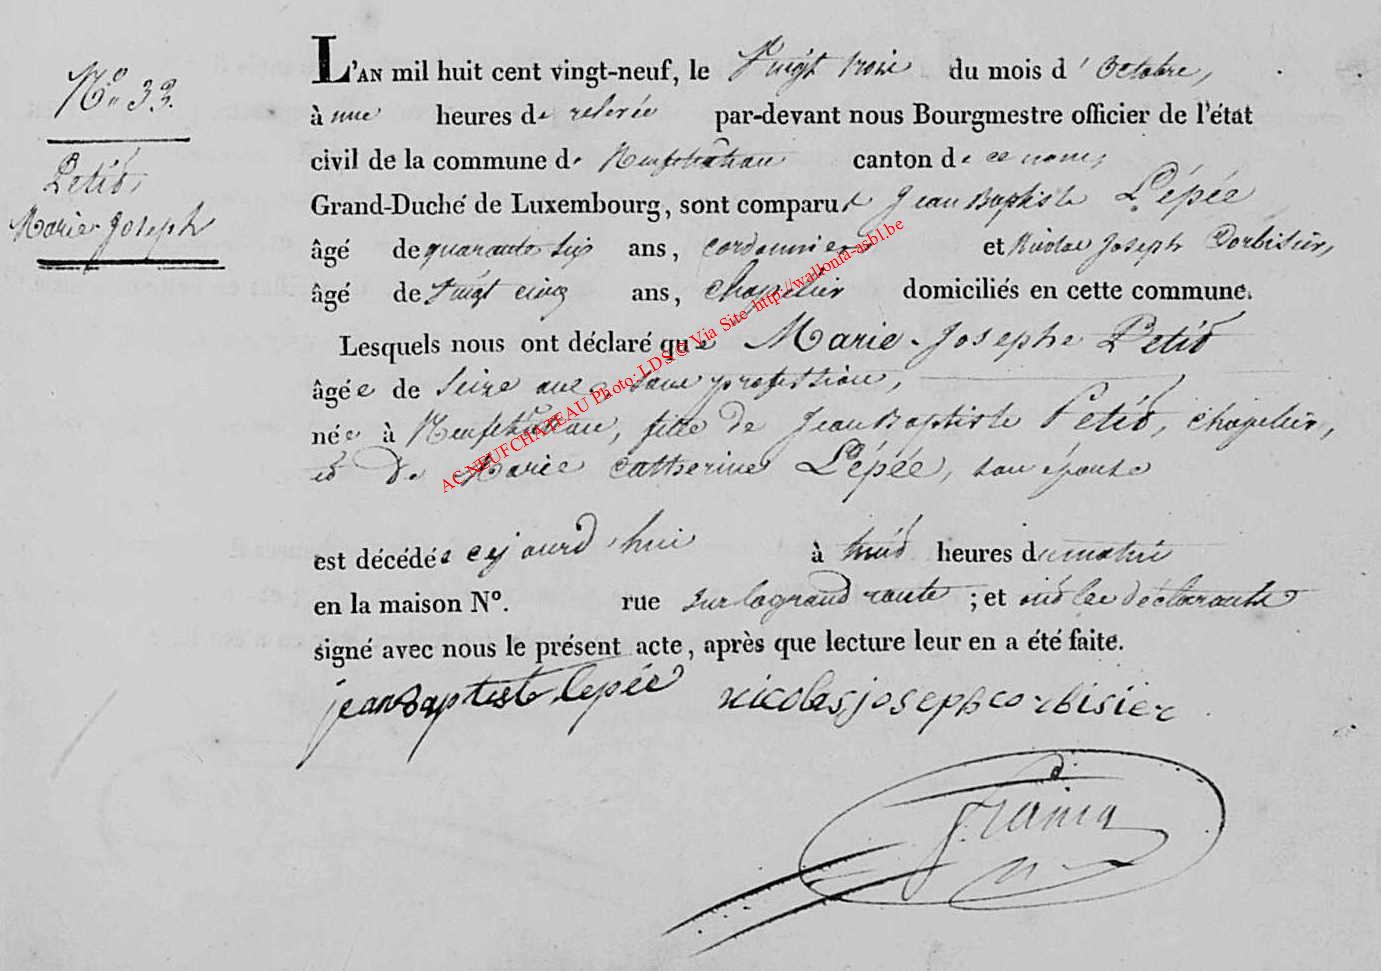 N.° 33.
Petit,
Marie Joseph
L'AN mil huit cent vingt-neuf, le Vingt trois du mois d'Octobre,
à une heures de relevée par-devant nous Bourgmestre officier de l'état
civil de la commune de Neufchateau canton de ce nom,
Grand-Duché de Luxembourg, sont comparut Jean Baptiste Lépée
âgé de quarante six ans, cordonnier et Nicolas Joseph Corbisier,
âgé de Vingt cinq ans, chapelier domiciliés en cette commune.
Lesquels nous ont déclaré que Marie-Josephe Petit
âgée de seize ans, sans profession,
née à Neufchateau, fille de Jean Baptiste Petit, chapelier,
et de Marie Catherine Lépée, son épouse
est décédée cejourd'hui à huit heures du matin
en la maison N°. rue sur la grand route ; et ont les déclarants
signé avec nous le présent acte, après que lecture leur en a été faite.
jean Baptiste lepée nicolas joseph corbisier
AC NEUFCHATEAU Photo: LDS © Via Site http://wallonia-asbl.be